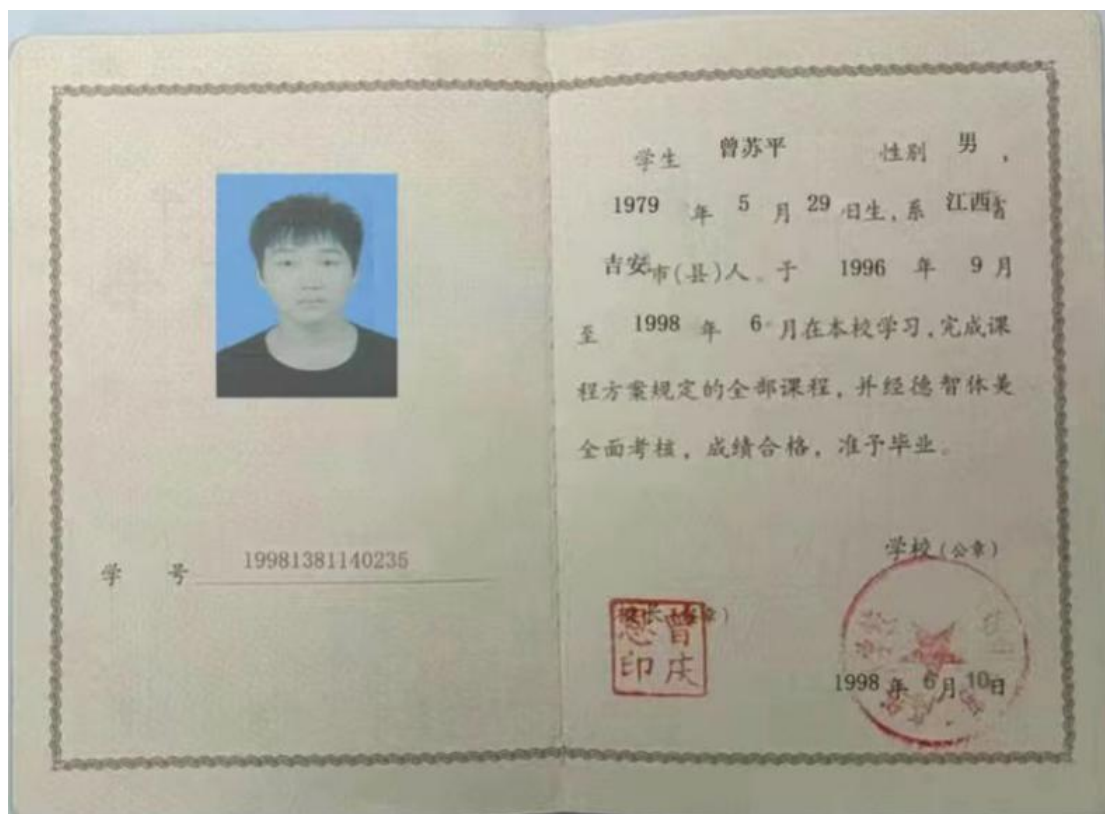 学号 19981381140235
学生 曾苏平 性别 男,
1979 年 5 月 29 日生,系 江西省
吉安市(县)人。于 1996 年 9 月
至 1998 年 6 月在本校学习,完成课
程方案规定的全部课程,并经德智体美
全面考核,成绩合格,准予毕业。
学校(公章)
校长(签章)
曾庆
印
1998 年 6 月 10 日